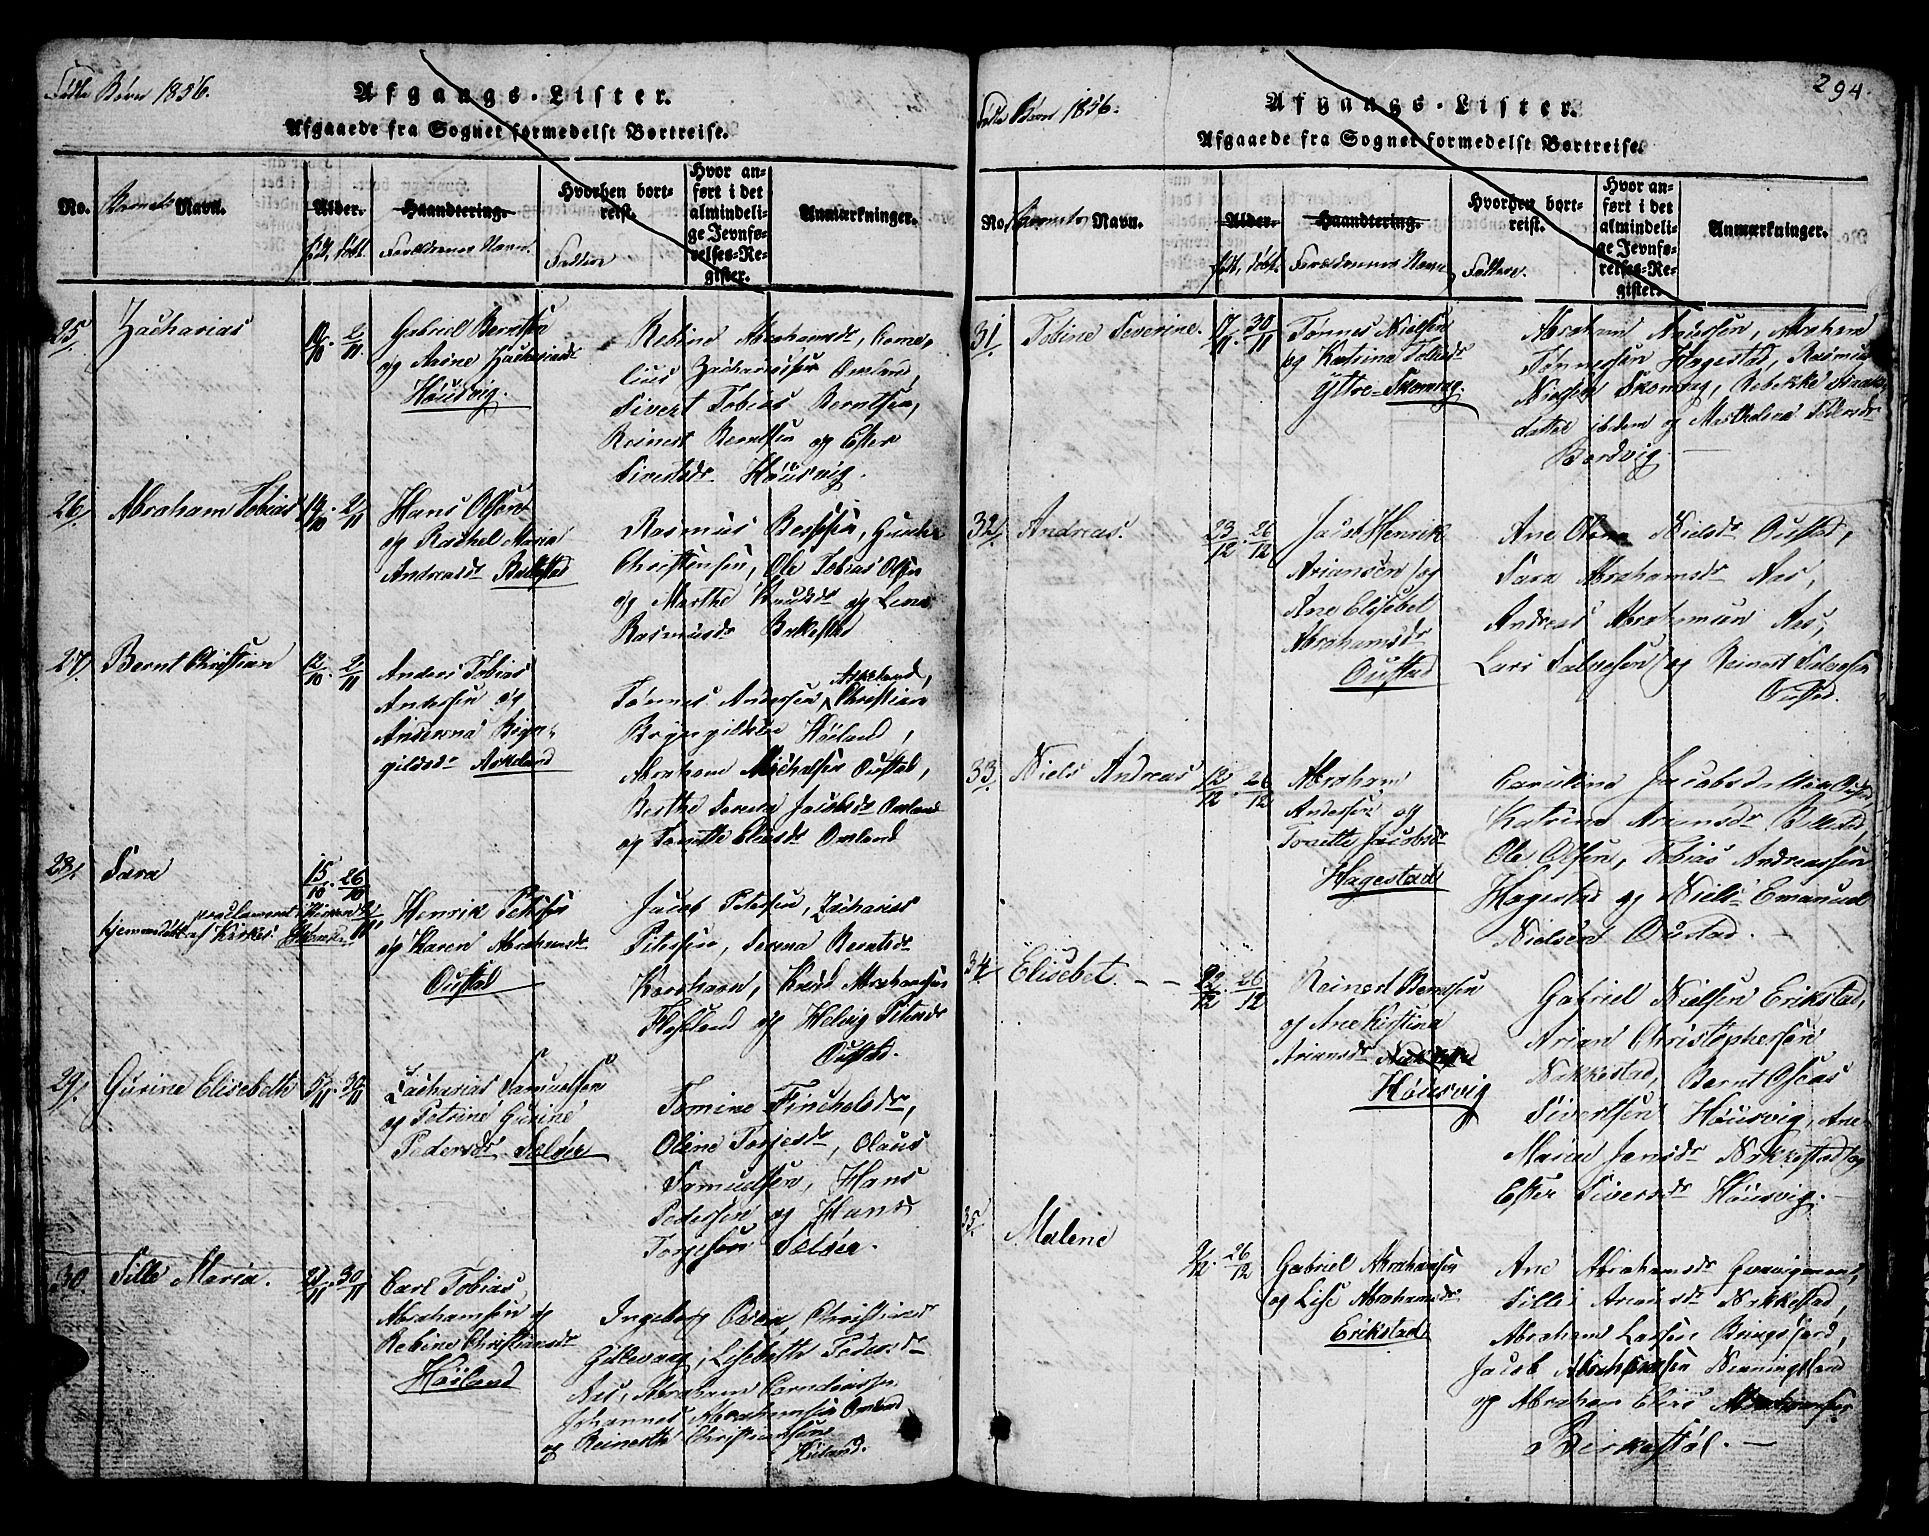 Fødte Børn 1856.
Afgangs-Lister.
Afgaaede fra Sognet formedelst Bortreise.
No.
Barnets Navn.
Alder.
født, døbt.
Haandtering.
Forældrenes Navne.
Hvorhen bort-
reist.
Faddere
Hvor an-
ført i det
almindeli-
ge Jevnfø-
relses-Re-
gister.
Anmærkninger.
25/.
Zacharias
10/10. 2/11
Gabriel Berntsen
og Asine Zachariasdr
Høusvig.
Rebine Abrahamsdr, Corne-
lius Zachariassen Omland,
Sivert Tobias Berntsen,
Reinert Berntsen og Ester
Sivertsdr Høusvig.
26/.
Abraham Tobias
14/10. 2/11
Hans Olsen
og Rachel Maria
Andreasdr Bakkestad
Rasmus
Christensen, Ole Tobias Olsen
og Marthe Knudsdr og Lena
Rasmusdr
27.
Bernt Christian
12/10. 2/11
Anders Tobias
Andersen og
gildsdr Askeland
Askeland,
Tønnes Andersen, Christian
Høiland,
Abraham Michalsen Oustad,
Berthe Serena Jacobsdr Omland
og Tonette Eliasdr Omland
28/.
Sara
15/10. 26/10
hjemmedøbt af Kirkes.
Henrik Petersen
og Karen Abrahamsdr
Oustad
Jacob Petersen, Zacharias
Petersen, Serena Berntsdr
Korshavn, Knud Abrahamsen
og Helvig Petersdr
Oustad.
29/.
Gurine Elisebeth
5/11. 30/11
Zacharias Samuelsen
og Petrine Gurine
Pedersdr Sælør
Tomine
Oline Torjesdr, Olaus
Samuelsen, Hans
Pedersen og Hans
Torjesen Sælør.
30.
Sille Maria.
21/11. 30/11
Carl Tobias
Abrahamsen og
Rebine Christiansdr
Høiland
Ingeborg Christiansdr
Gillevaag, Lisebeth Pedersdr
Nes, Abraham
Johannes Abrahamsen Omland
og Reinerth Christiansen
Høiland.
294.
Fødte Børn 1856.
Afgangs-Lister.
Afgaaede fra Sognet formedelst Bortreise.
No.
Barnets Navn.
Alder.
født, døbt.
Haandtering.
Forældrenes Navne
Hvorhen bort-
reist.
Faddere.
Hvor an-
ført i det
almindeli-
ge Jevnfø-
relses-Re-
gister.
Anmærkninger.
31/.
Tobine Severine.
17/11. 30/11
Tønnes Nielsen
og Katrina Tollesdr
Ytre-Skomrag
Abraham Abraham
Tønnessen Hagestad, Rasmus
Nielsen Skomrag, Rebekke
datter ibidem og Pedersdr
Bordvig.
32/.
Andreas.
23/12. 26/12
Jacob Henrik
Ariansen og
Ane Elisebet
Abrahamsdr
Oustad
Ane Oline Nielsdr Oustad,
Sara Abrahamsdr Aas,
Andreas Abrahamsen Aas,
Lars Salvesen og Reinert Salvesen
Oustad.
33.
Niels Andreas
12/12. 26/12
Abraham
Andersen og
Tonette Jacobsdr
Hagestad
Carolina Jacobsdr
Katrine Ariansdr
Ole Olsen, Tobias Andreassen
Hagestad og Niels Emanuel
Nielsen Oustad.
34/.
Elisebet.
22/12. 26/12
Reinert Berntsen
og Ane Kistina
Ariansdr
Høusvig
Gabriel Nielsen Erikstad,
Arian Christophersen
Nakkestad, Bernt Oseas
Sivertsen Høusvig, Ane
Maria Jensdr Nakkestad og
Ester Siversdr Høusvig.
35/.
Malene
2/12. 26/12
Gabriel Abrahamsen
og Lise Abrahamsdr
Erikstad
Ane Abrahamsdr
Sille Nakkestad,
Abraham Lassen
Jacob Abrahamsen
og Abraham Elias
Birkestøl.